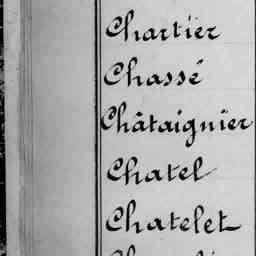 Chartier
Chassé
Châtaignier
Chatel
Chatelet